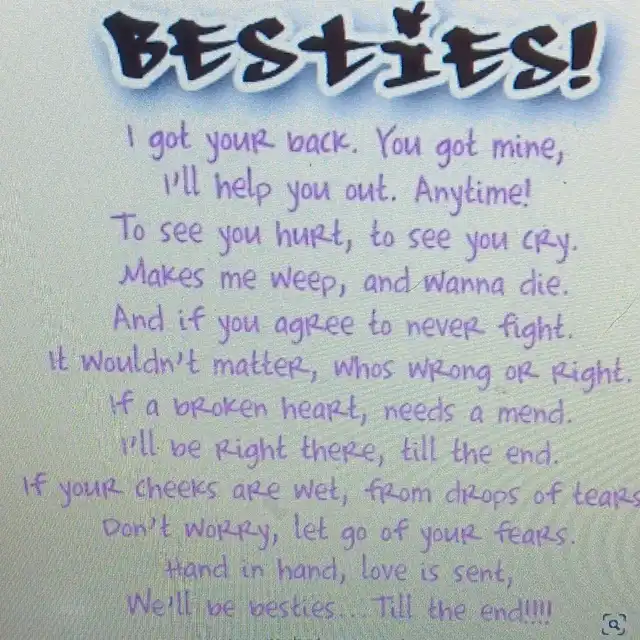 BESTIES!
I got your back. You got mine,
I'll help you out. Anytime!
To see you hurt, to see you cry.
Makes me weep, and wanna die.
And if you agree to never fight.
It wouldn't matter, whos wrong or right.
If a broken heart, needs a mend.
I'll be right there, till the end.
If your cheeks are wet, from drops of tears
Don't worry, let go of your fears.
Hand in hand, love is sent,
We'll be besties... Till the end!!!!